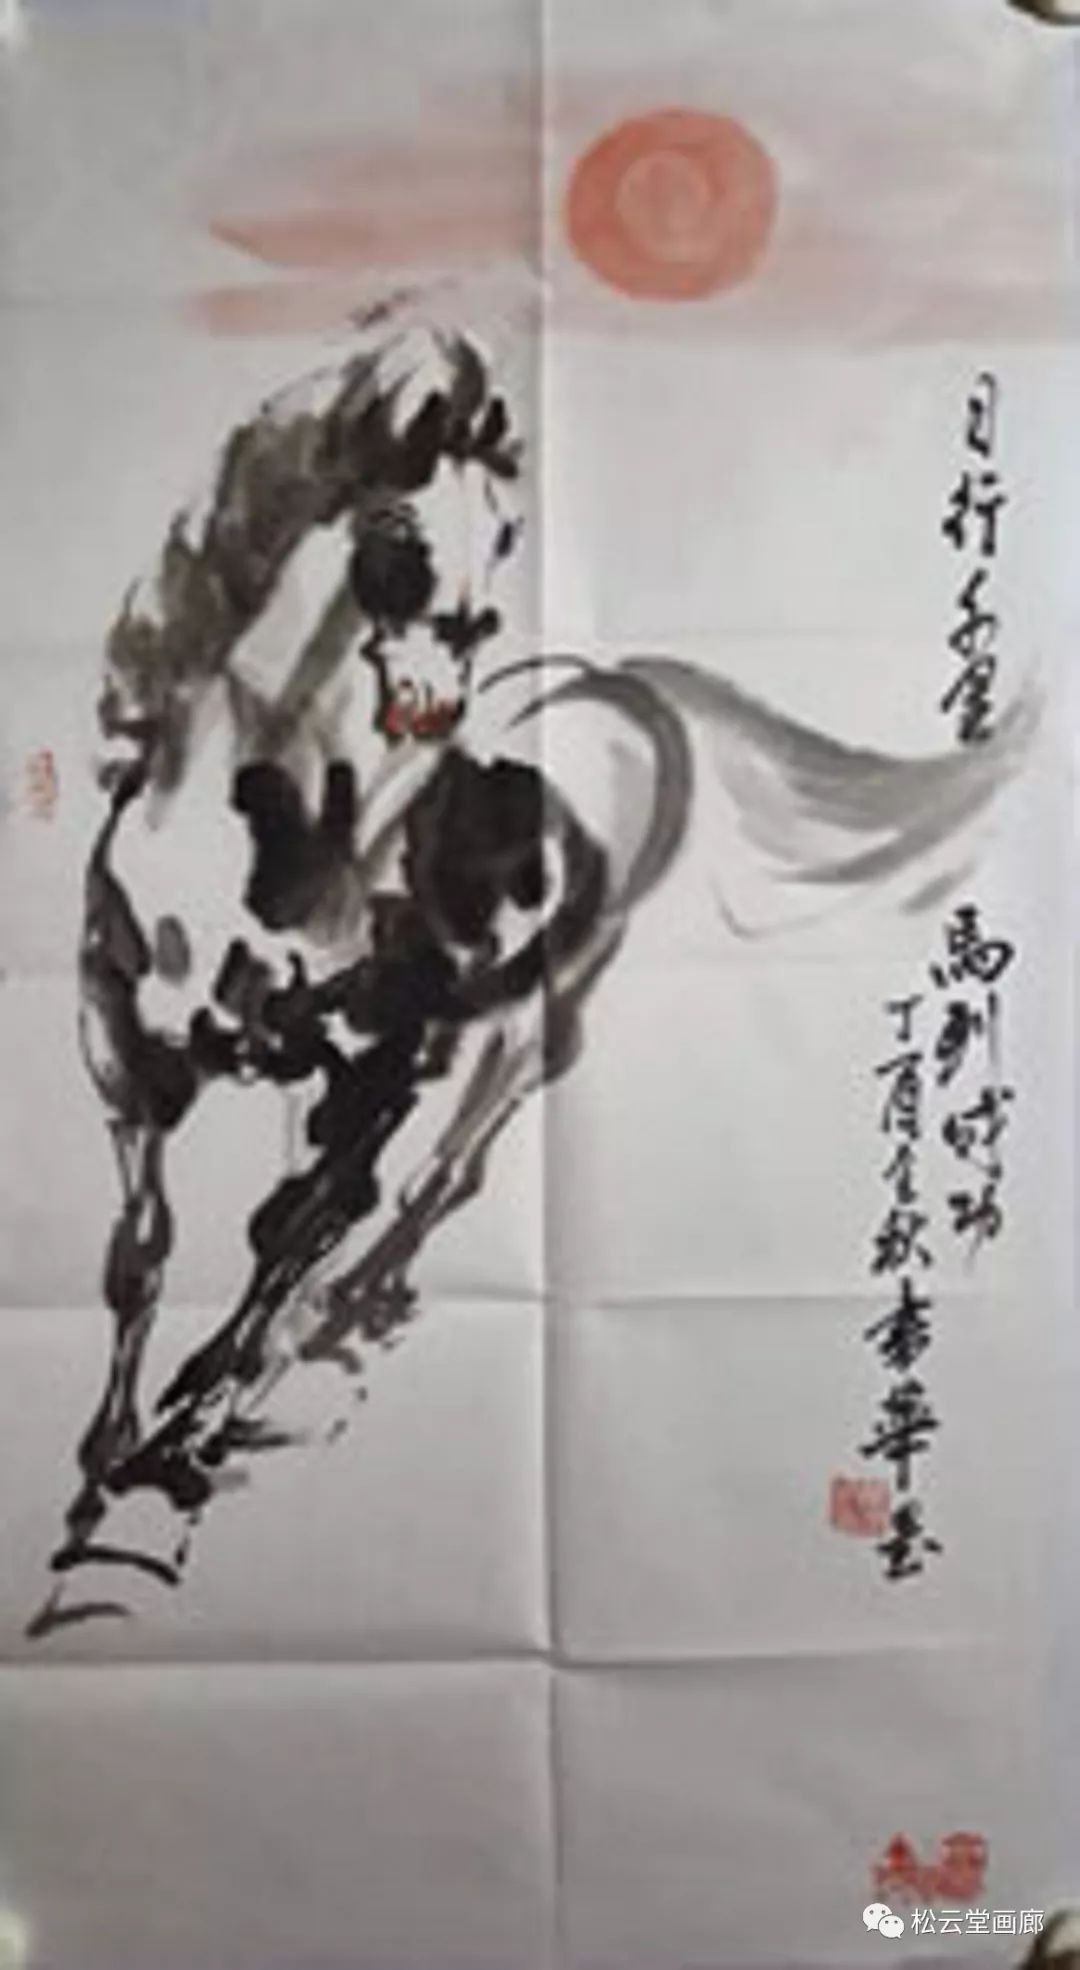 日行千里
馬到成功
丁酉金秋書華画
松云堂画廊